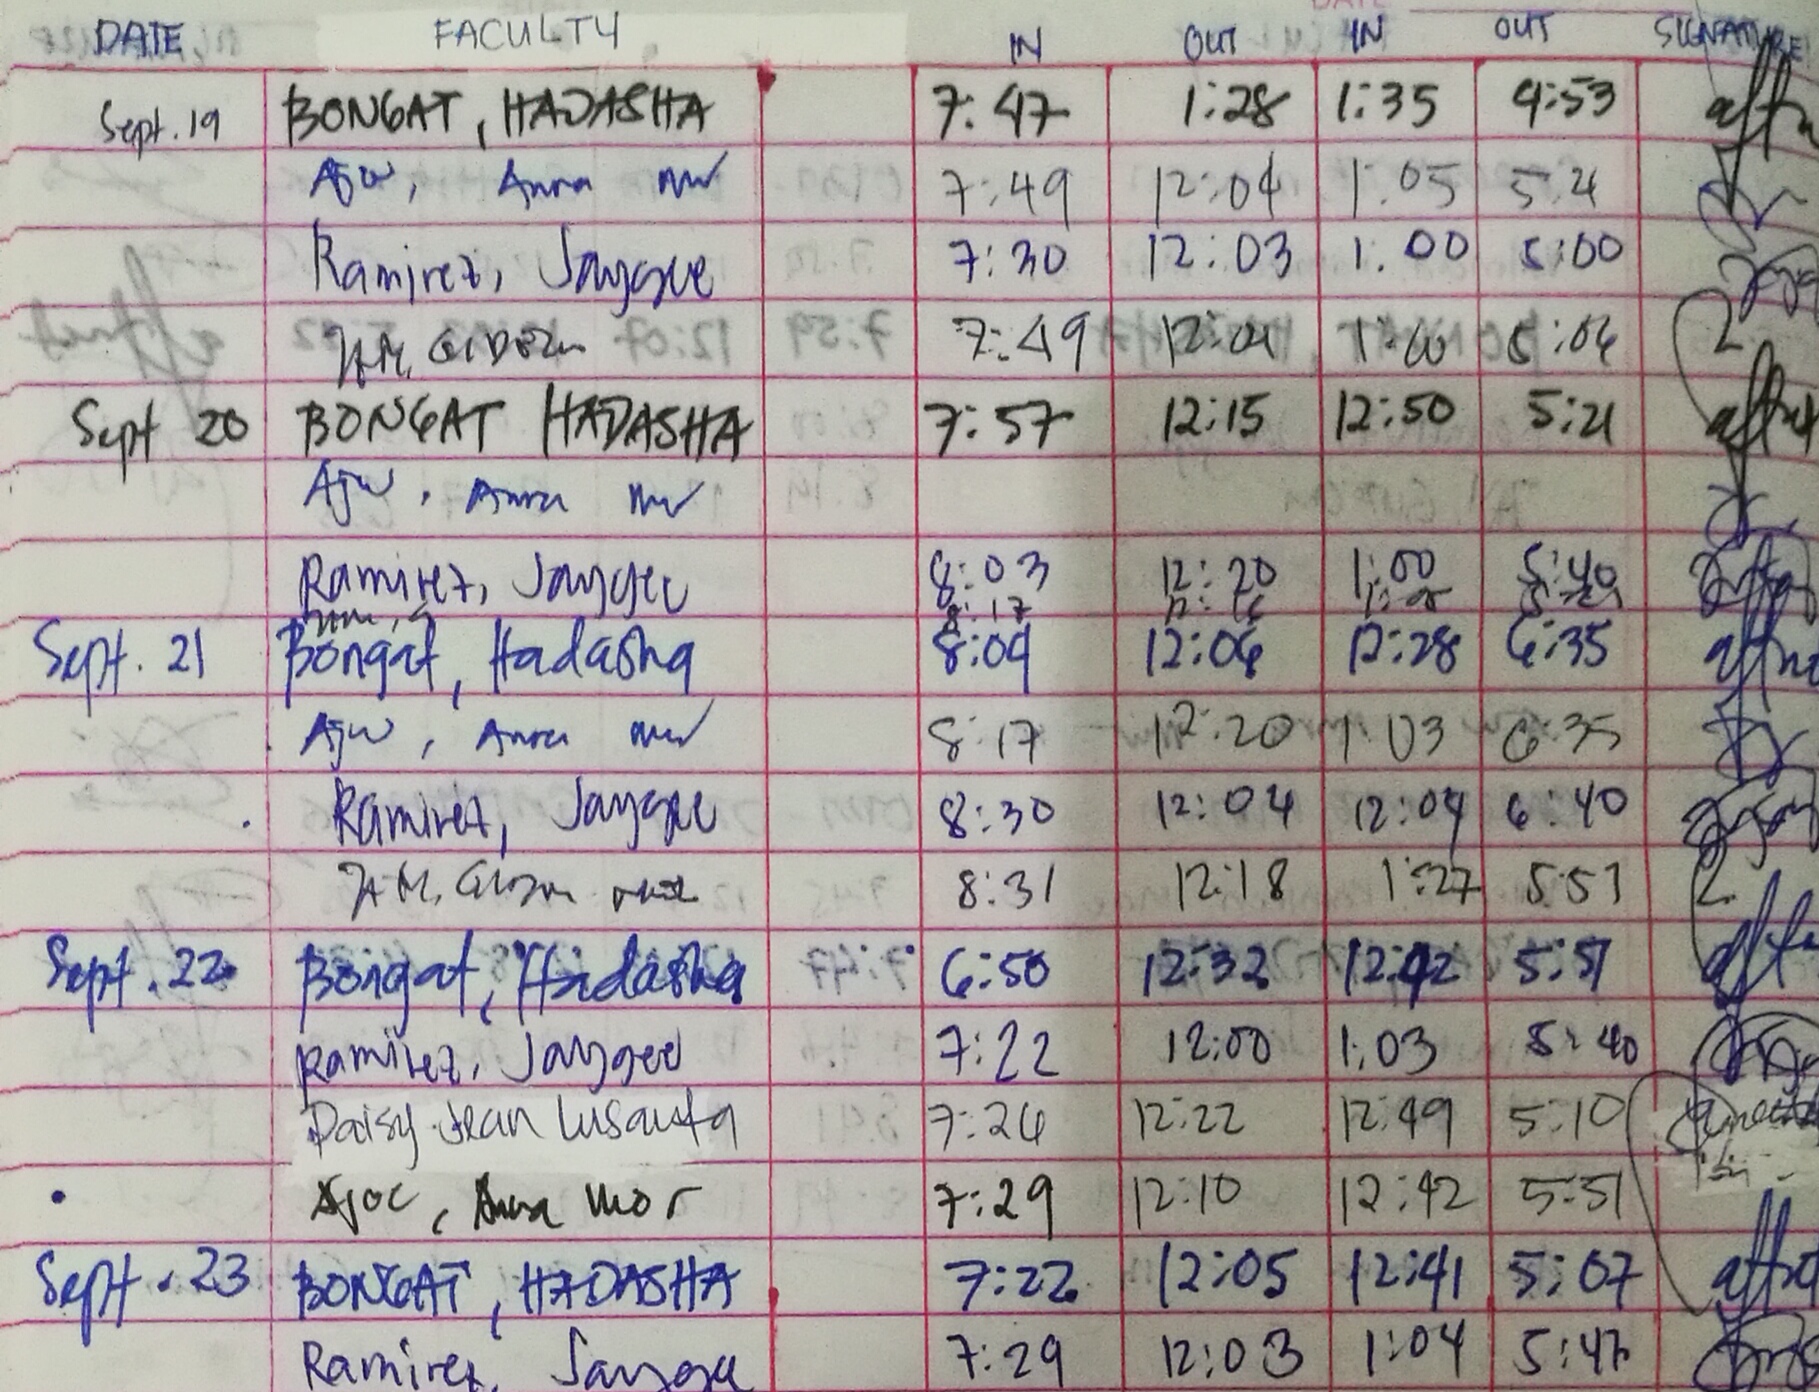 DATE FACULTY IN OUT IN OUT SIGNATURE
Sept. 19 BONGAT, HADASHA 7:47 1:28 1:35 4:53
Anna 7:49 12:04 1:05
Ramirez, Jaygee 7:30 12:03 1:00 5:00
7:49
Sept 20 BONGAT HADASHA 7:57 12:15 12:50 5:21
Anna
Ramirez, Jaygee 8:03 12:20 1:00 5:40
8:17
Sept. 21 Bongat, Hadasha 8:09 12:06 12:28 6:35
Anna 8:17 12:20 1:03 6:35
Ramirez, Jaygee 8:30 12:04 12:04 6:40
8:31 12:18 1:27 5:51
Sept. 22 Bongat, Hadasha 6:50 12:32 12:42 5:51
Ramirez, Jaygee 7:22 12:00 1:03 5:40
Daisy Jean Lusauta 7:26 12:22 12:49 5:10
Ajoc, Anna Mor 7:29 12:10 12:42 5:51
Sept. 23 BONGAT, HADASHA 7:22 12:05 12:41 5:07
Ramirez, Jaygee 7:29 12:03 1:04 5:47